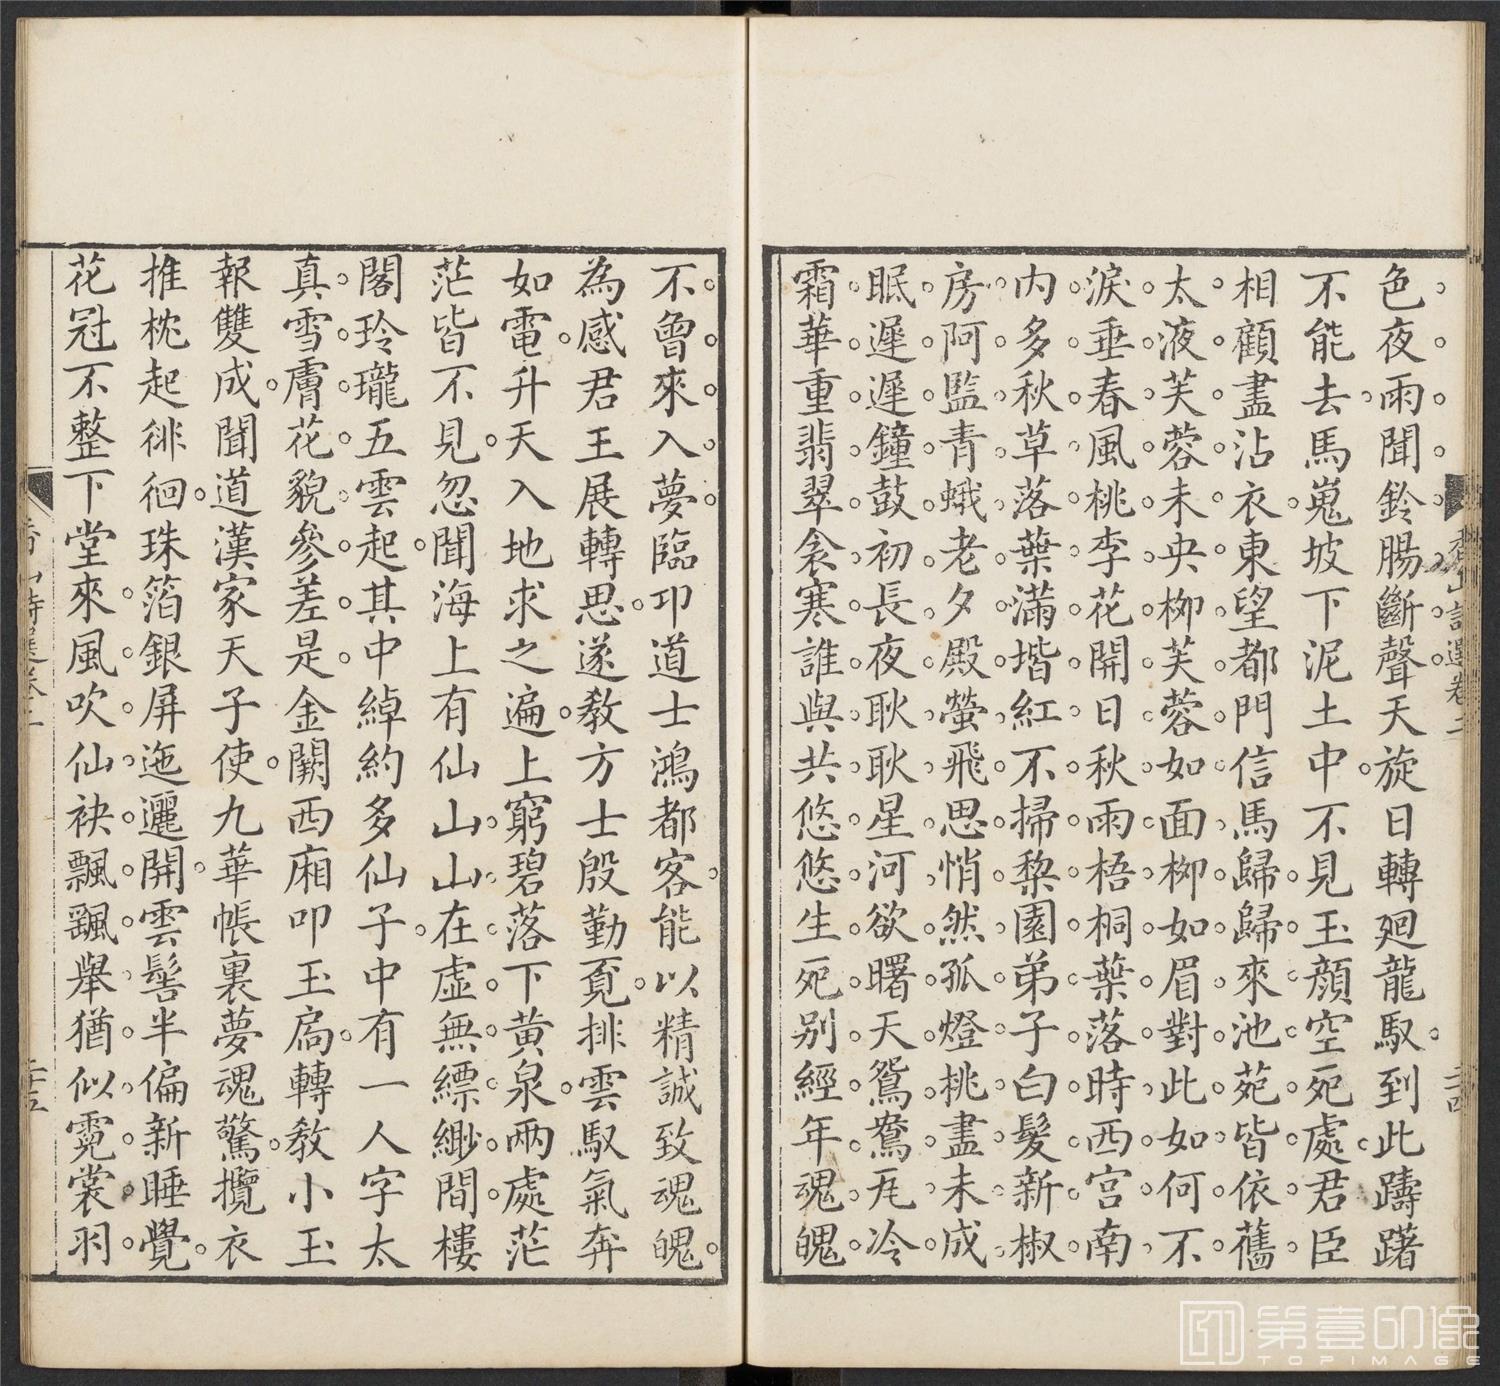 色夜雨聞鈴腸斷聲天旋日轉廻龍馭到此躊躇
不能去馬嵬坡下泥土中不見玉顏空死處君臣
相顧盡沾衣東望都門信馬歸歸來池苑皆依舊
太液芙蓉未央柳芙蓉如面柳如眉對此如何不
淚垂春風桃李花開日秋雨梧桐葉落時西宮南
内多秋草落葉滿堦紅不掃棃園弟子白髮新椒
房阿監青蛾老夕殿螢飛思悄然孤燈挑盡未成
眠遲遲鐘鼓初長夜耿耿星河欲曙天鴛鴦瓦冷
霜華重翡翠衾寒誰與共悠悠生死別經年魂魄
香山詩選卷二
二十四
不曾來入夢臨卭道士鴻都客能以精誠致魂魄
為感君王展轉思遂教方士殷勤覓排雲馭氣奔
如電升天入地求之遍上窮碧落下黄泉兩處茫
茫皆不見忽聞海上有仙山山在虛無縹緲間樓
閣玲瓏五雲起其中綽約多仙子中有一人字太
真雪膚花貌參差是金闕西廂叩玉扃轉教小玉
報雙成聞道漢家天子使九華帳裏夢魂驚攬衣
推枕起徘徊珠箔銀屏迤邐開雲髻半偏新睡覺
花冠不整下堂來風吹仙袂飄飄舉猶似霓裳羽
香山詩選卷二
二十五
第壹印像
TOPIMAGE